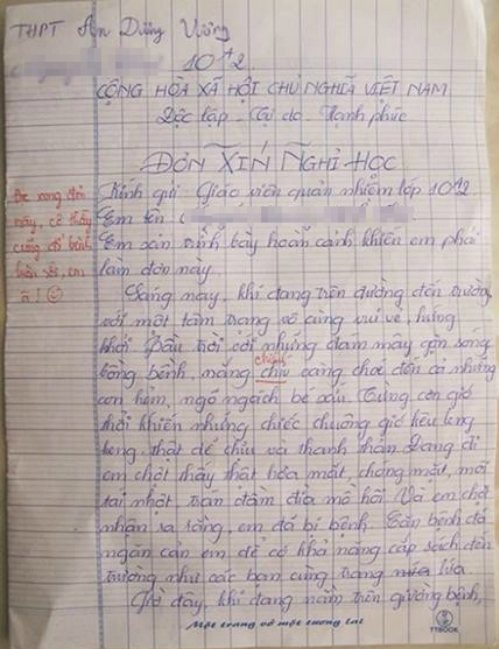 THPT An Dương Vương
10A2
CỘNG HÒA XÃ HỘI CHỦ NGHĨA VIỆT NAM
Độc lập - Tự do - Hạnh phúc
ĐƠN XIN NGHỈ HỌC
Kính gửi: Giáo viên quản nhiệm lớp 10A2
Em tên
Em xin trình bày hoàn cảnh khiến em phải
làm đơn này.
Đọc xong đơn
này, cô thấy
cũng đỡ bệnh
luôn rồi, em
ạ! ☺
Sáng nay, khi đang trên đường đến trường
với một tâm trạng vô cùng vui vẻ, hứng
khởi. Bầu trời với những đám mây gợn sóng
bồng bềnh, nắng chíu càng chói đến cả những
chiếu
con hẻm, ngõ ngách bé xíu. Từng cơn gió
thổi khiến những chiếc chuông gió kêu leng
keng, thật dễ chịu và thanh thản. Đang đi
em chợt thấy thật hoa mắt, chóng mặt, môi
tái nhợt, trán đầm đìa mồ hôi. Và em chợt
nhận ra rằng, em đã bị bệnh. Căn bệnh đã
ngăn cản em để có khả năng cắp sách đến
trường như các bạn cùng trang lứa.
Giờ đây, khi đang nằm trên giường bệnh,
Một trang vở một tương lai
TTBOOK